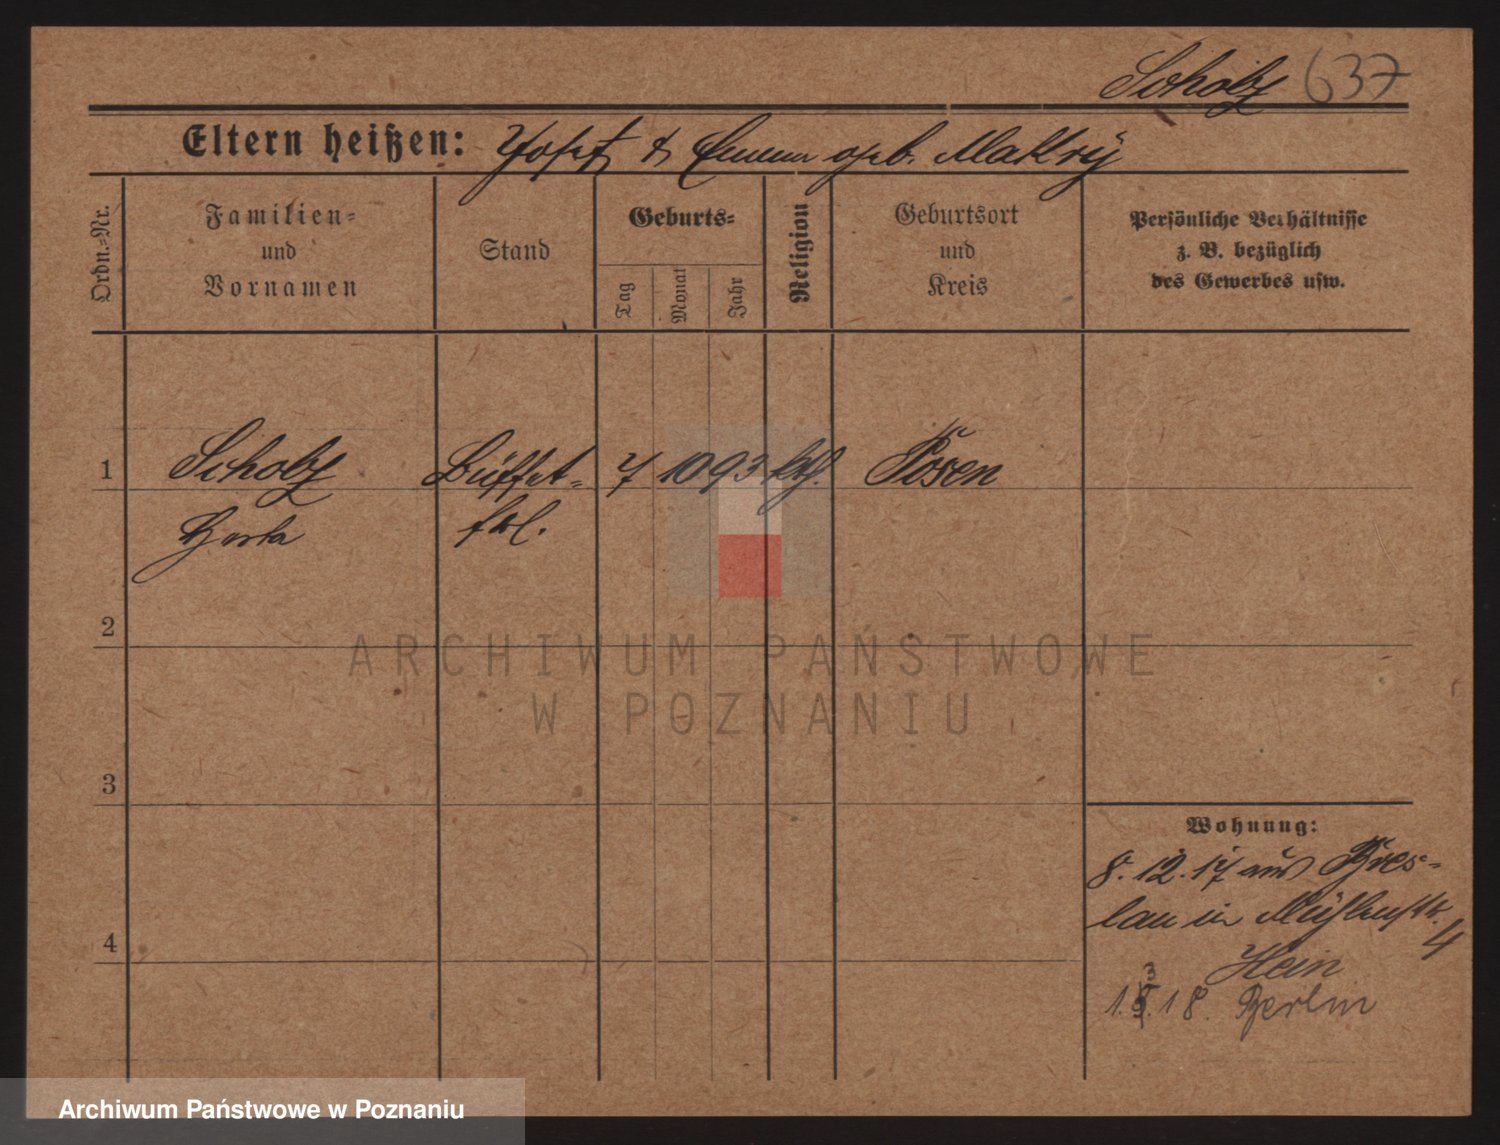 Scholz 637
Eltern heißen: Josef & Emma geb. Makry
Ordn.=Nr.
Familien=
und
Vornamen
Stand
Geburts=
Tag
Monat
Jahr
Religion
Geburtsort
und
Kreis
Persönliche Verhältnisse
z. B. bezüglich
des Gewerbes usw.
1 Scholz Büffet= 7 10 93 kth. Posen
Herta frl.
2
3
4
Wohnung:
8.12.17 aus Bres=
lau in Mühlenstr.
4
Hein
1.3.18. Berlin
ARCHIWUM PAŃSTWOWE
W POZNANIU
Archiwum Państwowe w Poznaniu